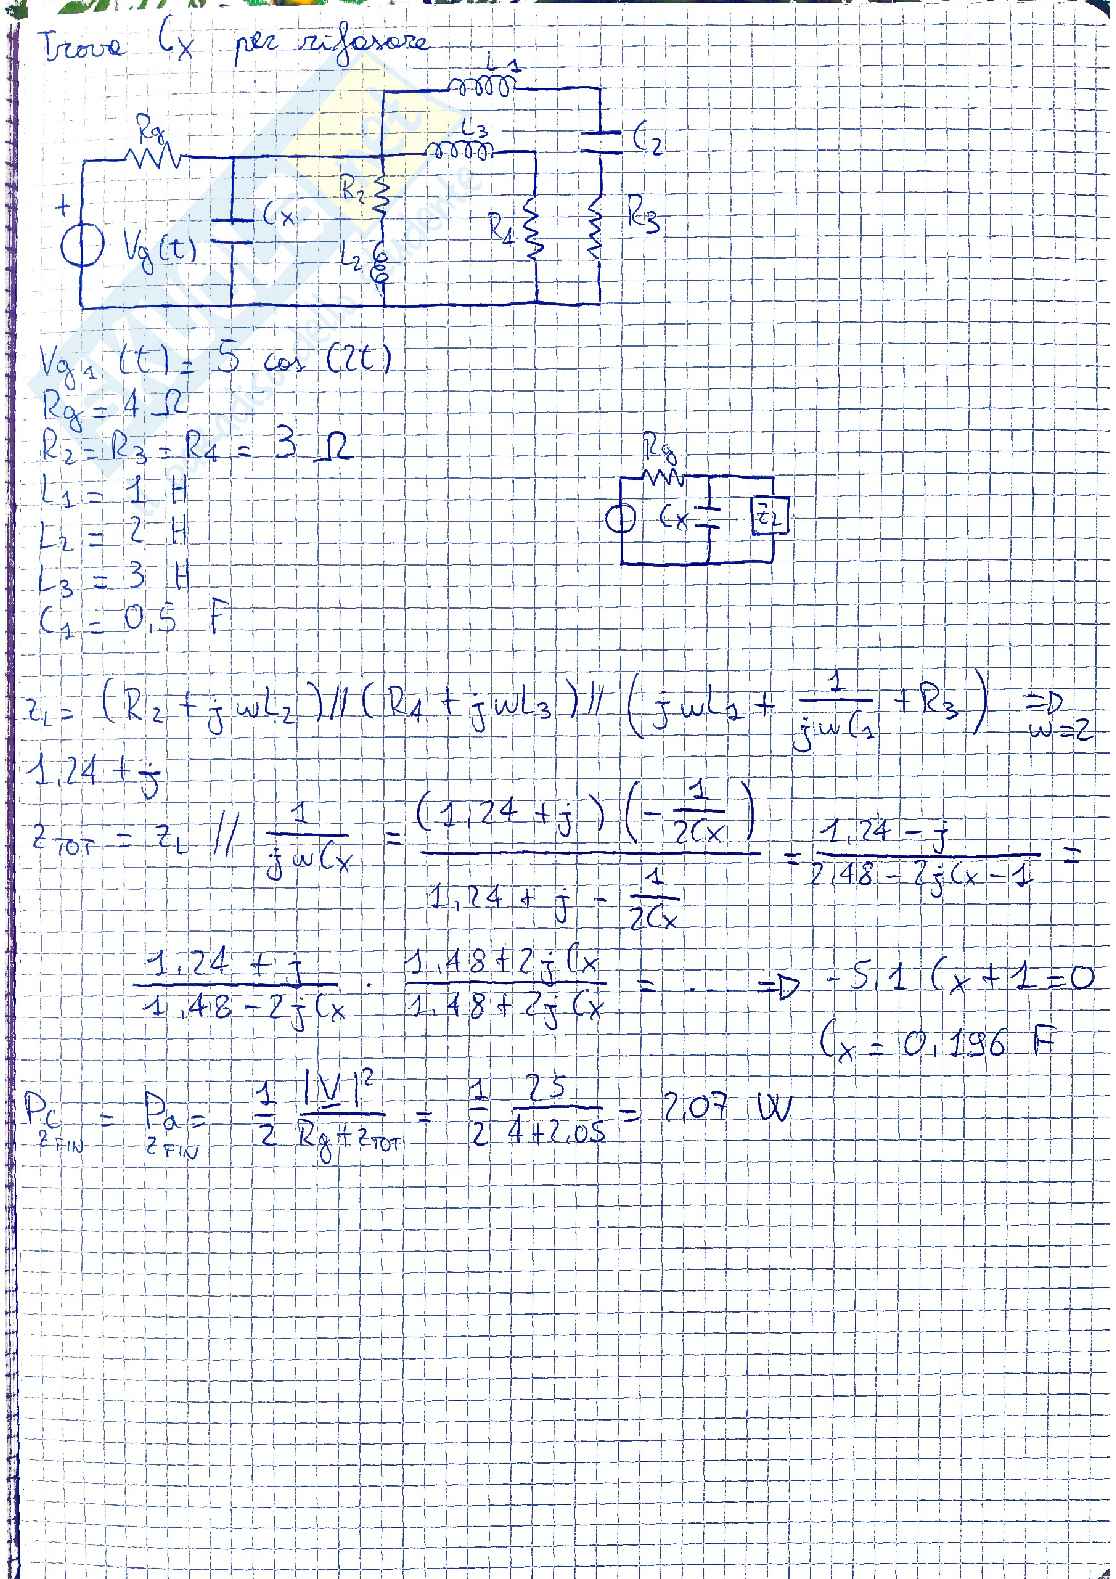 Trova Cx per rifasare
L1
Rg
L3
C2
+
Cx
R2
R4
R3
Vg(t)
L2
Vg1 (t) = 5 cos (2t)
Rg = 4 Ω
R2 = R3 = R4 = 3 Ω
L1 = 1 H
L2 = 2 H
L3 = 3 H
C1 = 0,5 F
Rg
Cx
ZL
ZL = (R2 + jwL2) // (R4 + jwL3) // (jwL1 + 1/(jwC1) + R3) => w=2
1,24 + j
ZTOT = ZL // 1/(jwCx) = (1,24 + j)(-1/(2Cx)) / (1,24 + j - 1/(2Cx)) = (1,24 - j)/(2,48 - 2jCx - 1) =
(1,24 + j)/(1,48 - 2jCx) · (1,48 + 2jCx)/(1,48 + 2jCx) = .... => -5,1 Cx + 1 = 0
Cx = 0,196 F
PcZFIN = PaZFIN = 1/2 |V|²/(Rg + ZTOT) = 1/2 25/(4+2,05) = 2,07 W